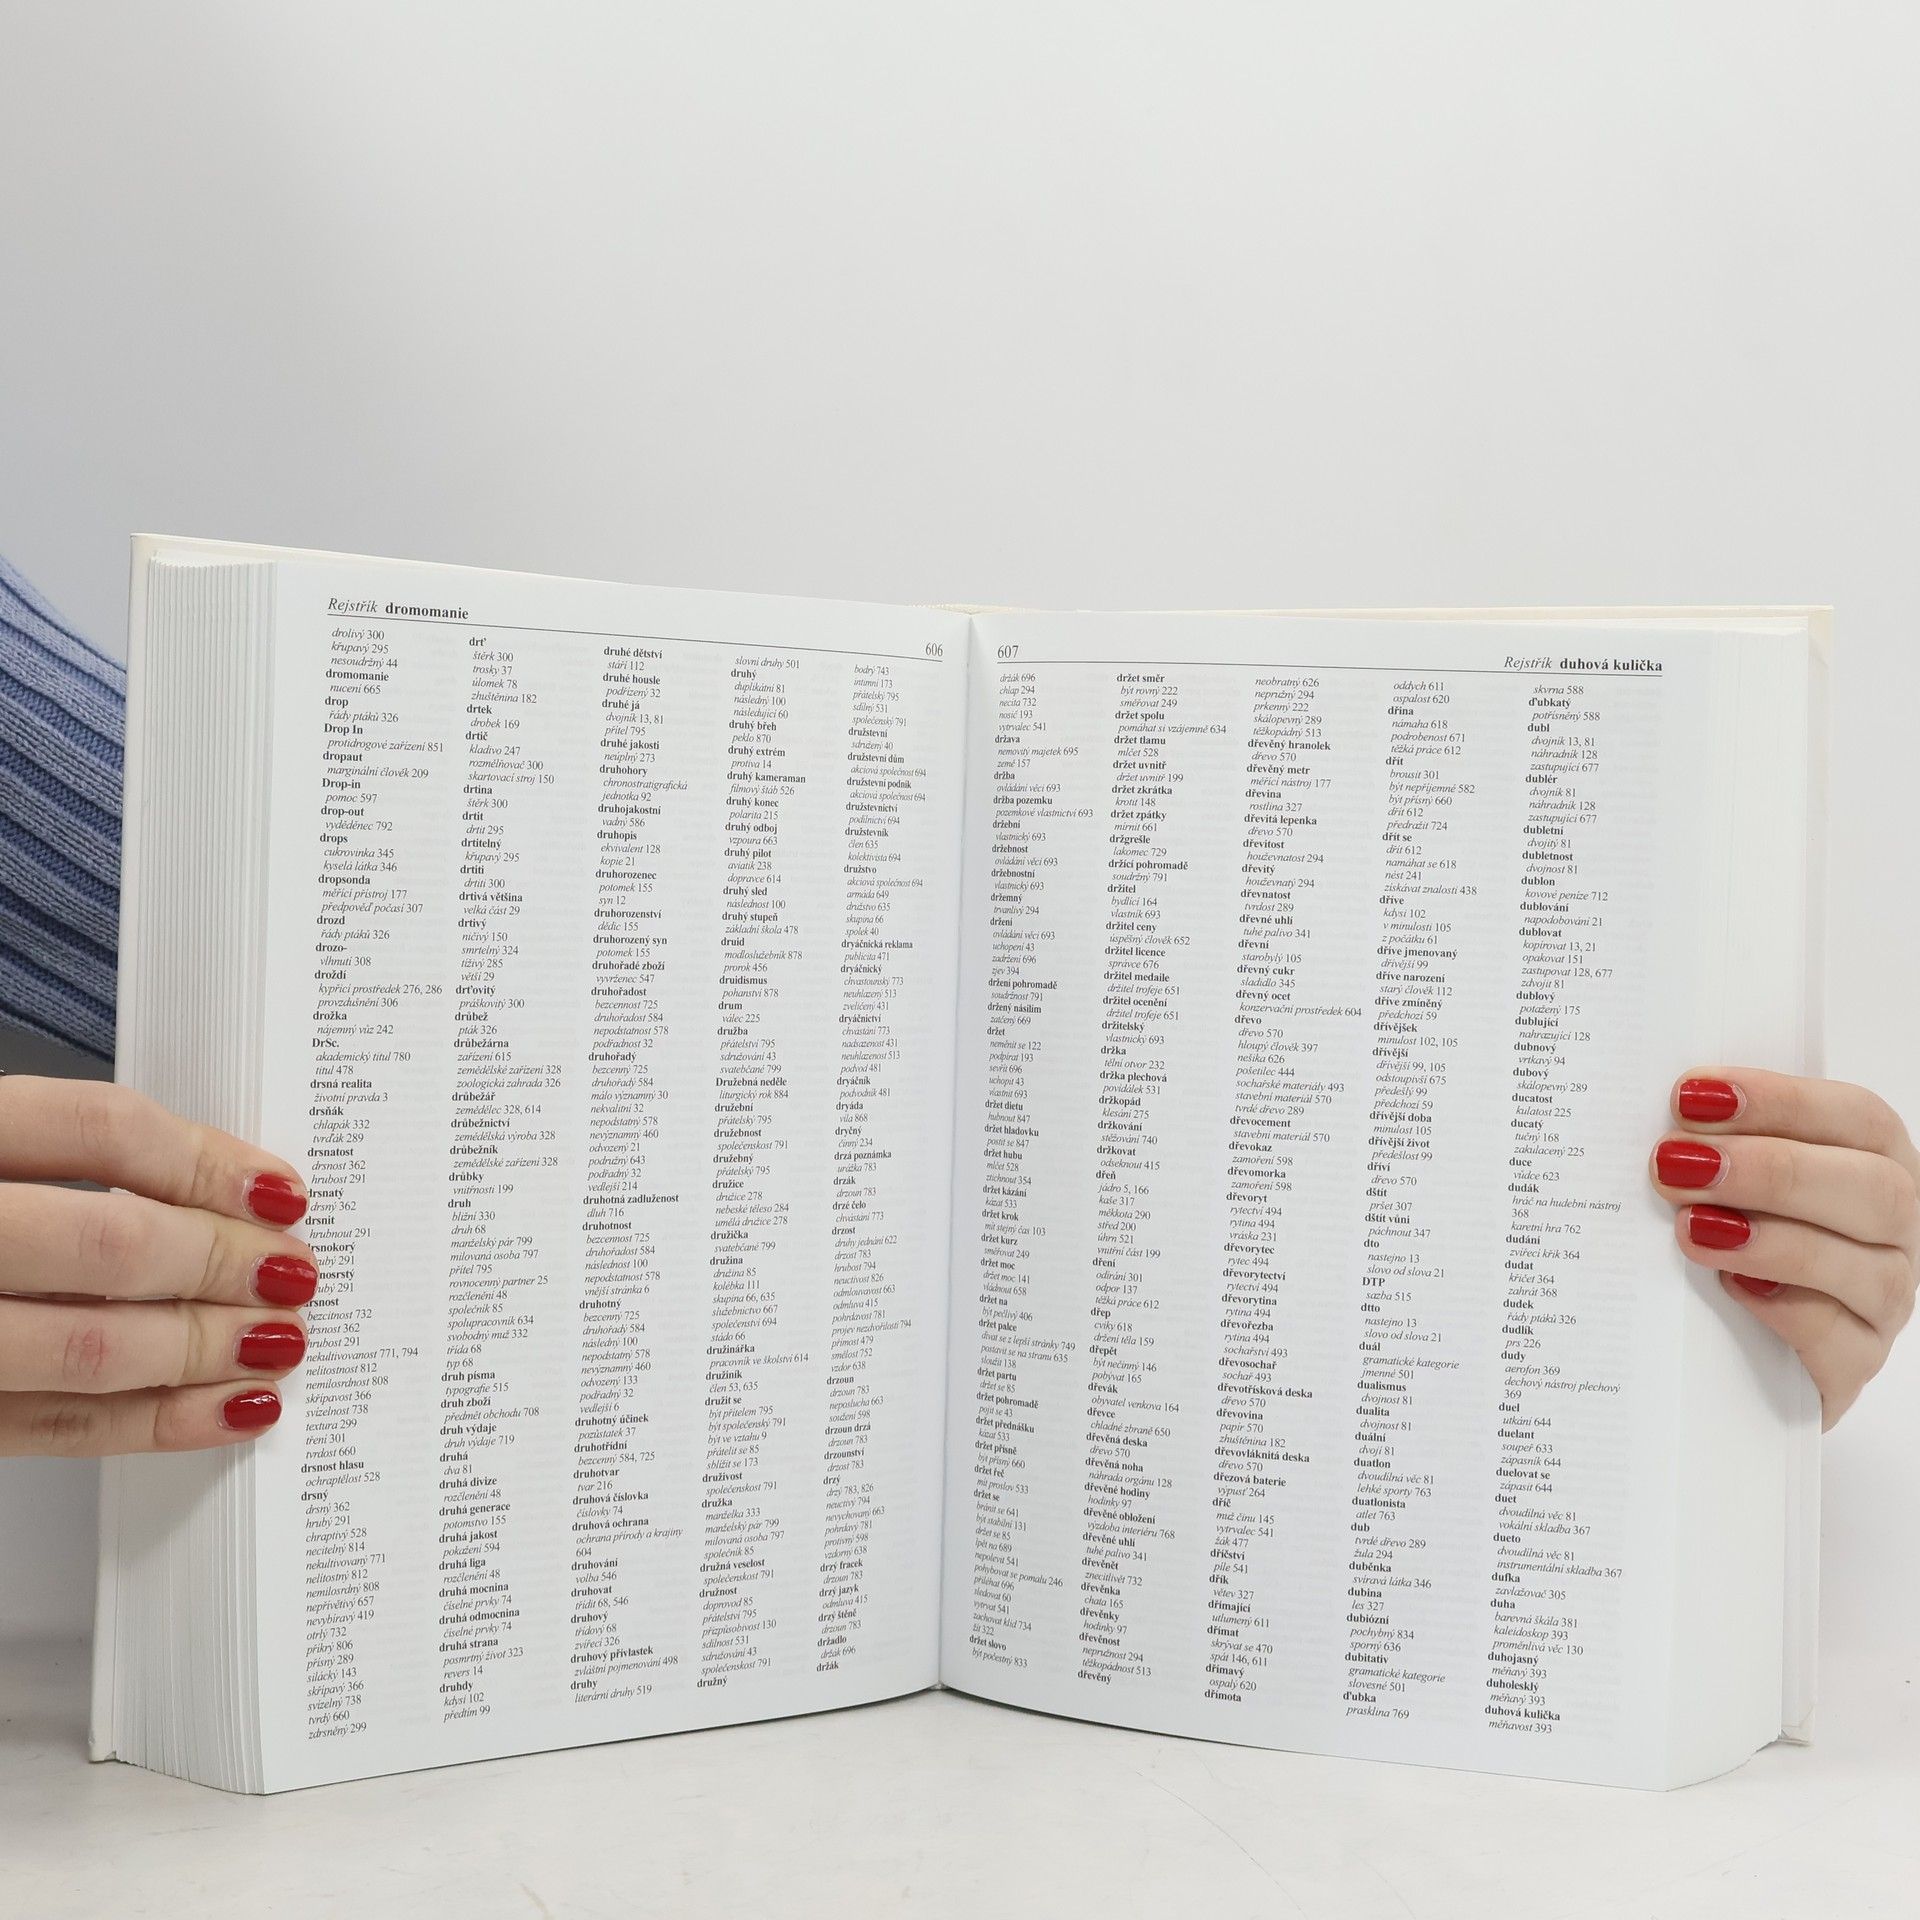 Rejstřík dromomanie
606
drolivý 300
křupavý 295
nesoudržný 44
dromomanie
nucení 665
drop
řády ptáků 326
Drop In
protidrogové zařízení 851
dropaut
marginální člověk 209
Drop-in
pomoc 597
drop-out
vyděděnec 792
drops
cukrovinka 345
kyselá látka 346
dropsonda
měřící přístroj 177
předpověď počasí 307
drozd
řády ptáků 326
drozo-
vlhnutí 308
droždí
kypřící prostředek 276, 286
provzdušnění 306
drožka
nájemný vůz 242
DrSc.
akademický titul 780
titul 478
drsná realita
životní pravda 3
drsňák
chlapák 332
tvrďák 289
drsnatost
drsnost 362
hrubost 291
drsnatý
drsný 362
drsnit
hrubnout 291
291
291
bezcitnost 732
drsnost 362
hrubost 291
nekultivovanost 771, 794
nelítostnost 812
nemilosrdnost 808
skřípavost 366
svízelnost 738
textura 299
tření 301
tvrdost 660
drsnost hlasu
ochraptělost 528
drsný
drsný 362
hrubý 291
chraptivý 528
necitelný 814
nekultivovaný 771
nelítostný 812
nemilosrdný 808
nepřívětivý 657
nevybíravý 419
otrlý 732
příkrý 806
přísný 289
silácký 143
skřípavý 366
svízelný 738
tvrdý 660
zdrsněný 299
drť
štěrk 300
trosky 37
úlomek 78
zhuštěnina 182
drtek
drobek 169
drtič
kladivo 247
rozmělňovač 300
skartovací stroj 150
drtina
štěrk 300
drtit
drtit 295
drtitelný
křupavý 295
drtiti
drtiti 300
drtivá většina
velká část 29
drtivý
ničivý 150
smrtelný 324
tíživý 285
větší 29
drťovitý
práškovitý 300
drůbež
pták 326
drůbežárna
zařízení 615
zemědělské zařízení 328
zoologická zahrada 326
drůbežář
zemědělec 328, 614
drůbežnictví
zemědělská výroba 328
drůbežník
zemědělské zařízení 328
drůbky
vnitřnosti 199
druh
bližní 330
druh 68
manželský pár 799
milovaná osoba 797
přítel 795
rovnocenný partner 25
rozčlenění 48
společník 85
spolupracovník 634
svobodný muž 332
třída 68
typ 68
druh písma
typografie 515
druh zboží
předmět obchodu 708
druh výdaje
druh výdaje 719
druhá
dva 81
druhá divize
rozčlenění 48
druhá generace
potomstvo 155
druhá jakost
pokažení 594
druhá liga
rozčlenění 48
druhá mocnina
číselné prvky 74
druhá odmocnina
číselné prvky 74
druhá strana
posmrtný život 323
revers 14
druhdy
kdysi 102
předtím 99
druhé dětství
stáří 112
druhé housle
podřízený 32
druhé já
dvojník 13, 81
přítel 795
druhé jakosti
neúplný 273
druhohory
chronostratigrafická
jednotka 92
druhojakostní
vadný 586
druhopis
ekvivalent 128
kopie 21
druhorozenec
potomek 155
syn 12
druhorozenství
dědic 155
druhorozený syn
potomek 155
druhořadé zboží
vyvrženec 547
druhořadost
bezcennost 725
druhořadost 584
nepodstatnost 578
podřadnost 32
druhořadý
bezcenný 725
druhořadý 584
málo významný 30
nekvalitní 32
nepodstatný 578
nevýznamný 460
odvozený 21
podružný 643
podřadný 32
vedlejší 214
druhotná zadluženost
dluh 716
druhotnost
bezcennost 725
druhořadost 584
následnost 100
nepodstatnost 578
vnější stránka 6
druhotný
bezcenný 725
druhořadý 584
následný 100
nepodstatný 578
nevýznamný 460
odvozený 133
podřadný 32
vedlejší 6
druhotný účinek
pozůstatek 37
druhotřídní
bezcenný 584, 725
druhotvar
tvar 216
druhová číslovka
číslovky 74
druhová ochrana
ochrana přírody a krajiny
604
druhování
volba 546
druhovat
třídit 68, 546
druhový
třídový 68
zvířecí 326
druhový přívlastek
zvláštní pojmenování 498
druhy
literární druhy 519
slovní druhy 501
druhý
duplikátní 81
následný 100
následující 60
druhý břeh
peklo 870
druhý extrém
protiva 14
druhý kameraman
filmový štáb 526
druhý konec
polarita 215
druhý odboj
vzpoura 663
druhý pilot
aviatik 238
dopravce 614
druhý sled
následnost 100
druhý stupeň
základní škola 478
druid
modloslužebník 878
prorok 456
druidismus
pohanství 878
drum
válec 225
družba
přátelství 795
sdružování 43
svatebčané 799
Družebná neděle
liturgický rok 884
družební
přátelský 795
družebnost
společenskost 791
družebný
přátelský 795
družice
družice 278
nebeské těleso 284
umělá družice 278
družička
svatebčané 799
družina
družina 85
kolébka 111
skupina 66, 635
služebnictvo 667
společenství 694
stádo 66
družinářka
pracovník ve školství 614
družiník
člen 53, 635
družit se
být přítelem 795
být společenský 791
být ve vztahu 9
přátelit se 85
sblížit se 173
druživost
společenskost 791
družka
manželka 333
manželský pár 799
milovaná osoba 797
společník 85
družná veselost
společenskost 791
družnost
doprovod 85
přátelství 795
přizpůsobivost 130
sdílnost 531
sdružování 43
společenskost 791
družný
bodrý 743
intimní 173
přátelský 795
sdílný 531
společenský 791
družstevní
sdružený 40
družstevní dům
akciová společnost 694
družstevní podnik
akciová společnost 694
družstevnictví
podílnictví 694
družstevník
člen 635
kolektivista 694
družstvo
akciová společnost 694
armáda 649
družstvo 635
skupina 66
spolek 40
dryáčnická reklama
publicita 471
dryáčnický
chvastounský 773
neuhlazený 513
zveličený 431
dryáčnictví
chvástání 773
nadsazenost 431
neuhlazenost 513
podvod 481
dryáčník
podvodník 481
dryáda
víla 868
dryčný
činný 234
drzá poznámka
urážka 783
drzák
drzoun 783
drzé čelo
chvástání 773
drzost
druhy jednání 622
drzost 783
hrubost 794
neuctivost 826
odmlouvavost 663
odmluva 415
pohrdavost 781
projev nezdvořilosti 794
přímost 479
smělost 752
vzdor 638
drzoun
drzoun 783
neposlucha 663
soužení 598
drzoun drzá
drzoun 783
drzounství
drzost 783
drzý
drzý 783, 826
neuctivý 794
nevychovaný 663
pohrdavý 781
protivný 598
vzdorný 638
drzý fracek
drzoun 783
drzý jazyk
odmluva 415
drzý štěně
drzoun 783
držadlo
držák 696
držák
607
Rejstřík duhová kulička
držák 696
chlap 294
necita 732
nosič 193
vytrvalec 541
država
nemovitý majetek 695
země 157
držba
ovládání věcí 693
držba pozemku
pozemkové vlastnictví 693
držební
vlastnický 693
držebnost
ovládání věcí 693
držebnostní
vlastnický 693
držemný
trvanlivý 294
držení
ovládání věcí 693
uchopení 43
zadržení 696
zjev 394
držení pohromadě
soudržnost 791
držený násilím
zatčený 669
držet
neměnit se 122
podpírat 193
svírat 696
uchopit 43
vlastnit 693
držet dietu
hubnout 847
držet hladovku
postit se 847
držet hubu
mlčet 528
ztichnout 354
držet kázání
kázat 533
držet krok
mít stejný čas 103
držet kurz
směřovat 249
držet moc
držet moc 141
vládnout 658
držet na
být pečlivý 406
držet palce
dívat se z lepší stránky 749
postavit se na stranu 635
sloužit 138
držet partu
držet se 85
držet pohromadě
pojit se 43
držet přednášku
kázat 533
držet přísně
být přísný 660
držet řeč
mít proslov 533
držet se
bránit se 641
být stabilní 131
držet se 85
lpět na 689
nepolevit 541
pohybovat se pomalu 246
přiléhat 696
sledovat 60
vytrvat 541
zachovat klid 734
žít 322
držet slovo
být počestný 833
držet směr
být rovný 222
směřovat 249
držet spolu
pomáhat si vzájemně 634
držet tlamu
mlčet 528
držet uvnitř
držet uvnitř 199
držet zkrátka
krotit 148
držet zpátky
mírnit 661
držgrešle
lakomec 729
držící pohromadě
soudržný 791
držitel
bydlící 164
vlastník 693
držitel ceny
úspěšný člověk 652
držitel licence
správce 676
držitel medaile
držitel trofeje 651
držitel ocenění
držitel trofeje 651
držitelský
vlastnický 693
držka
tělní otvor 232
držka plechová
povídálek 531
držkopád
klesání 275
držkování
stěžování 740
držkovat
odseknout 415
dřeň
jádro 5, 166
kaše 317
měkkota 290
střed 200
úhrn 521
vnitřní část 199
dření
odírání 301
odpor 137
těžká práce 612
dřep
cviky 618
držení těla 159
dřepět
být nečinný 146
pobývat 165
dřevák
obyvatel venkova 164
dřevce
chladné zbraně 650
dřevěná deska
dřevo 570
dřevěná noha
náhrada orgánu 128
dřevěné hodiny
hodinky 97
dřevěné obložení
výzdoba interiéru 768
dřevěné uhlí
tuhé palivo 341
dřevěnět
znecitlivět 732
dřevěnka
chata 165
dřevěnky
hodinky 97
dřevěnost
nepružnost 294
těžkopádnost 513
dřevěný
neobratný 626
nepružný 294
prkenný 222
skálopevný 289
těžkopádný 513
dřevěný hranolek
dřevo 570
dřevěný metr
měřící nástroj 177
dřevina
rostlina 327
dřevitá lepenka
dřevo 570
dřevitost
houževnatost 294
dřevitý
houževnatý 294
dřevnatost
tvrdost 289
dřevné uhlí
tuhé palivo 341
dřevní
starobylý 105
dřevný cukr
sladidlo 345
dřevný ocet
konzervační prostředek 604
dřevo
dřevo 570
hloupý člověk 397
nešika 626
pošetilec 444
sochařské materiály 493
stavební materiál 570
tvrdé dřevo 289
dřevocement
stavební materiál 570
dřevokaz
zamoření 598
dřevomorka
zamoření 598
dřevoryt
rytectví 494
rytina 494
vráska 231
dřevorytec
rytec 494
dřevorytectví
rytectví 494
dřevorytina
rytina 494
dřevořezba
rytina 494
sochařství 493
dřevosochař
sochař 493
dřevotřísková deska
dřevo 570
dřevovina
papír 570
zhuštěnina 182
dřevovláknitá deska
dřevo 570
dřezová baterie
výpusť 264
dříč
muž činu 145
vytrvalec 541
žák 477
dříčství
píle 541
dřík
větev 327
dřímající
utlumený 611
dřímat
skrývat se 470
spát 146, 611
dřímavý
ospalý 620
dřímota
oddych 611
ospalost 620
dřina
námaha 618
podrobenost 671
těžká práce 612
dřít
brousit 301
být nepříjemné 582
být přísný 660
dřít 612
předražit 724
dřít se
dřít 612
namáhat se 618
nést 241
získávat znalosti 438
dříve
kdysi 102
v minulosti 105
z počátku 61
dříve jmenovaný
dřívější 99
dříve narození
starý člověk 112
dříve zmíněný
předchozí 59
dřívějšek
minulost 102, 105
dřívější
dřívější 99, 105
odstoupivší 675
předešlý 99
předchozí 59
dřívější doba
minulost 105
dřívější život
předešlost 99
dříví
dřevo 570
dštít
pršet 307
dštít vůni
páchnout 347
dto
nastejno 13
slovo od slova 21
DTP
sazba 515
dtto
nastejno 13
slovo od slova 21
duál
gramatické kategorie
jmenné 501
dualismus
dvojnost 81
dualita
dvojnost 81
duální
dvojí 81
duatlon
dvoudílná věc 81
lehké sporty 763
duatlonista
atlet 763
dub
tvrdé dřevo 289
žula 294
duběnka
svíravá látka 346
dubina
les 327
dubiózní
pochybný 834
sporný 636
dubitativ
gramatické kategorie
slovesné 501
ďubka
prasklina 769
skvrna 588
ďubkatý
potřísněný 588
dubl
dvojník 13, 81
náhradník 128
zastupující 677
dublér
dvojník 81
náhradník 128
zastupující 677
dubletní
dvojitý 81
dubletnost
dvojnost 81
dublon
kovové peníze 712
dublování
napodobování 21
dublovat
kopírovat 13, 21
opakovat 151
zastupovat 128, 677
zdvojit 81
dublový
potažený 175
dublující
nahrazující 128
dubnový
vrtkavý 94
dubový
skálopevný 289
ducatost
kulatost 225
ducatý
tučný 168
zakulacený 225
duce
vůdce 623
dudák
hráč na hudební nástroj
368
karetní hra 762
dudání
zvířecí křik 364
dudat
křičet 364
zahrát 368
dudek
řády ptáků 326
dudlík
prs 226
dudy
aerofon 369
dechový nástroj plechový
369
duel
utkání 644
duelant
soupeř 633
zápasník 644
duelovat se
zápasit 644
duet
dvoudílná věc 81
vokální skladba 367
dueto
dvoudílná věc 81
instrumentální skladba 367
dufka
zavlažovač 305
duha
barevná škála 381
kaleidoskop 393
proměnlivá věc 130
duhojasný
měňavý 393
duholesklý
měňavý 393
duhová kulička
měňavost 393